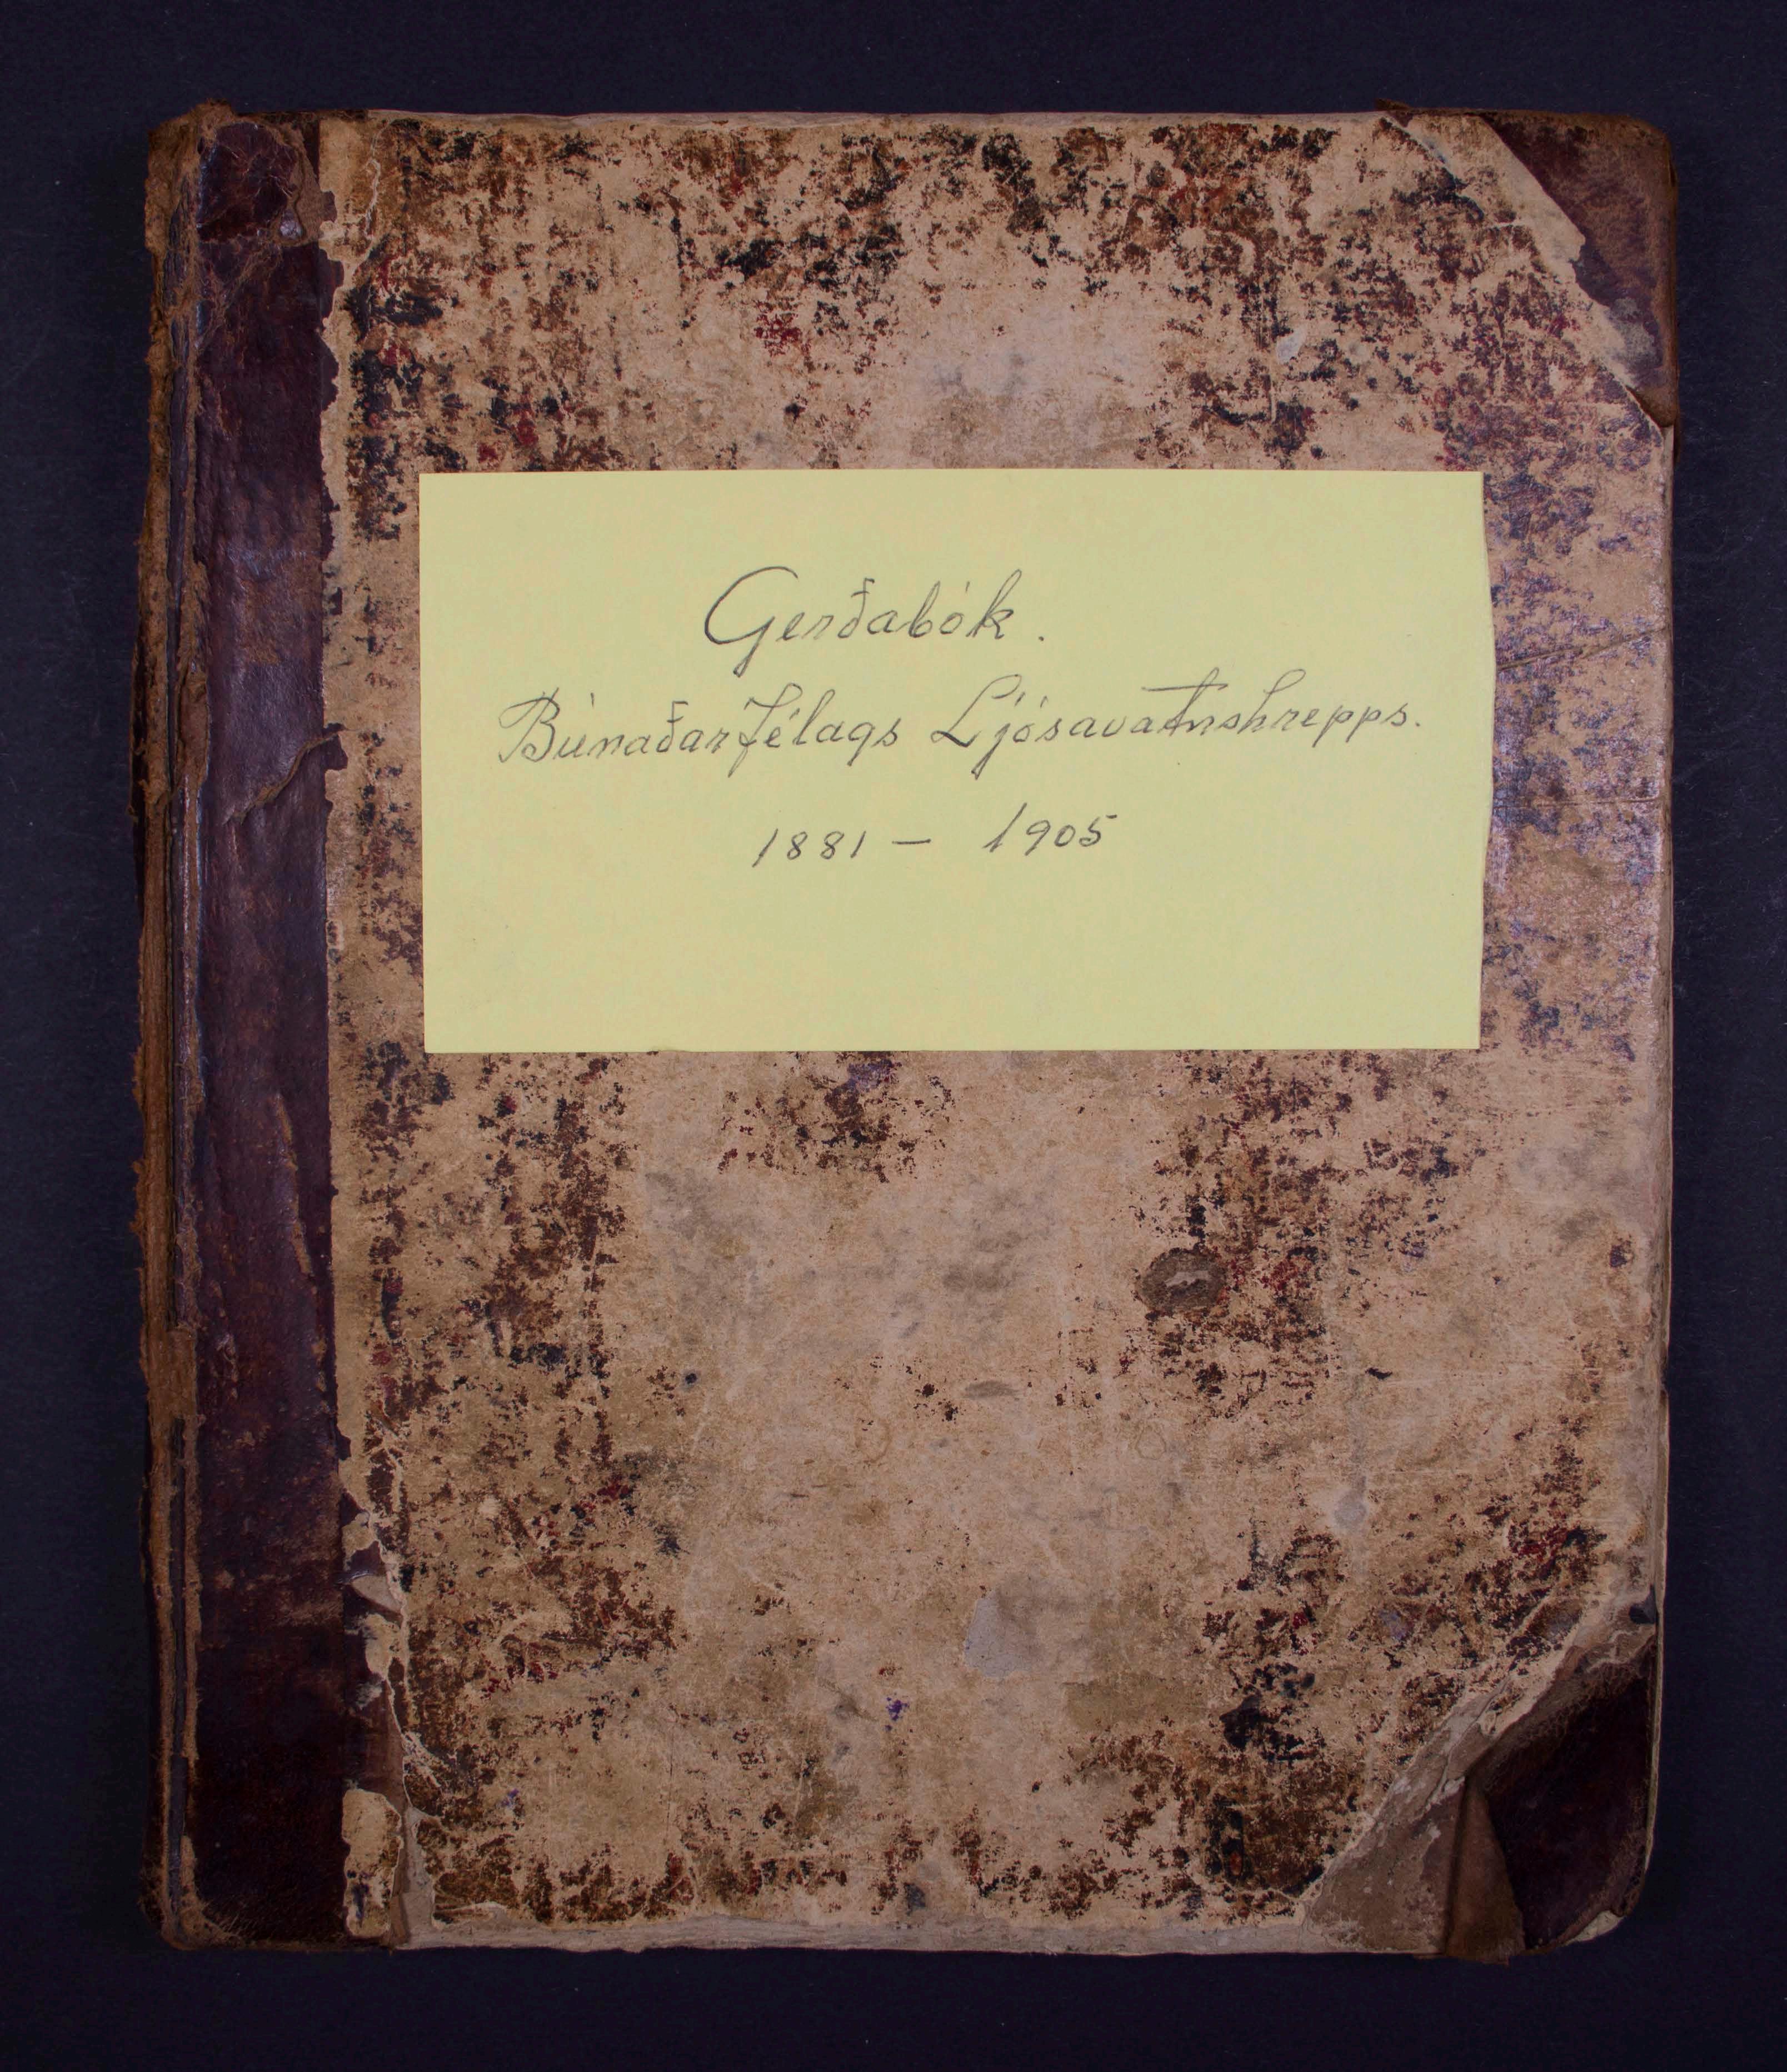 Gerðabók.
Búnaðarfélags Ljósavatnshrepps.
1881 - 1905